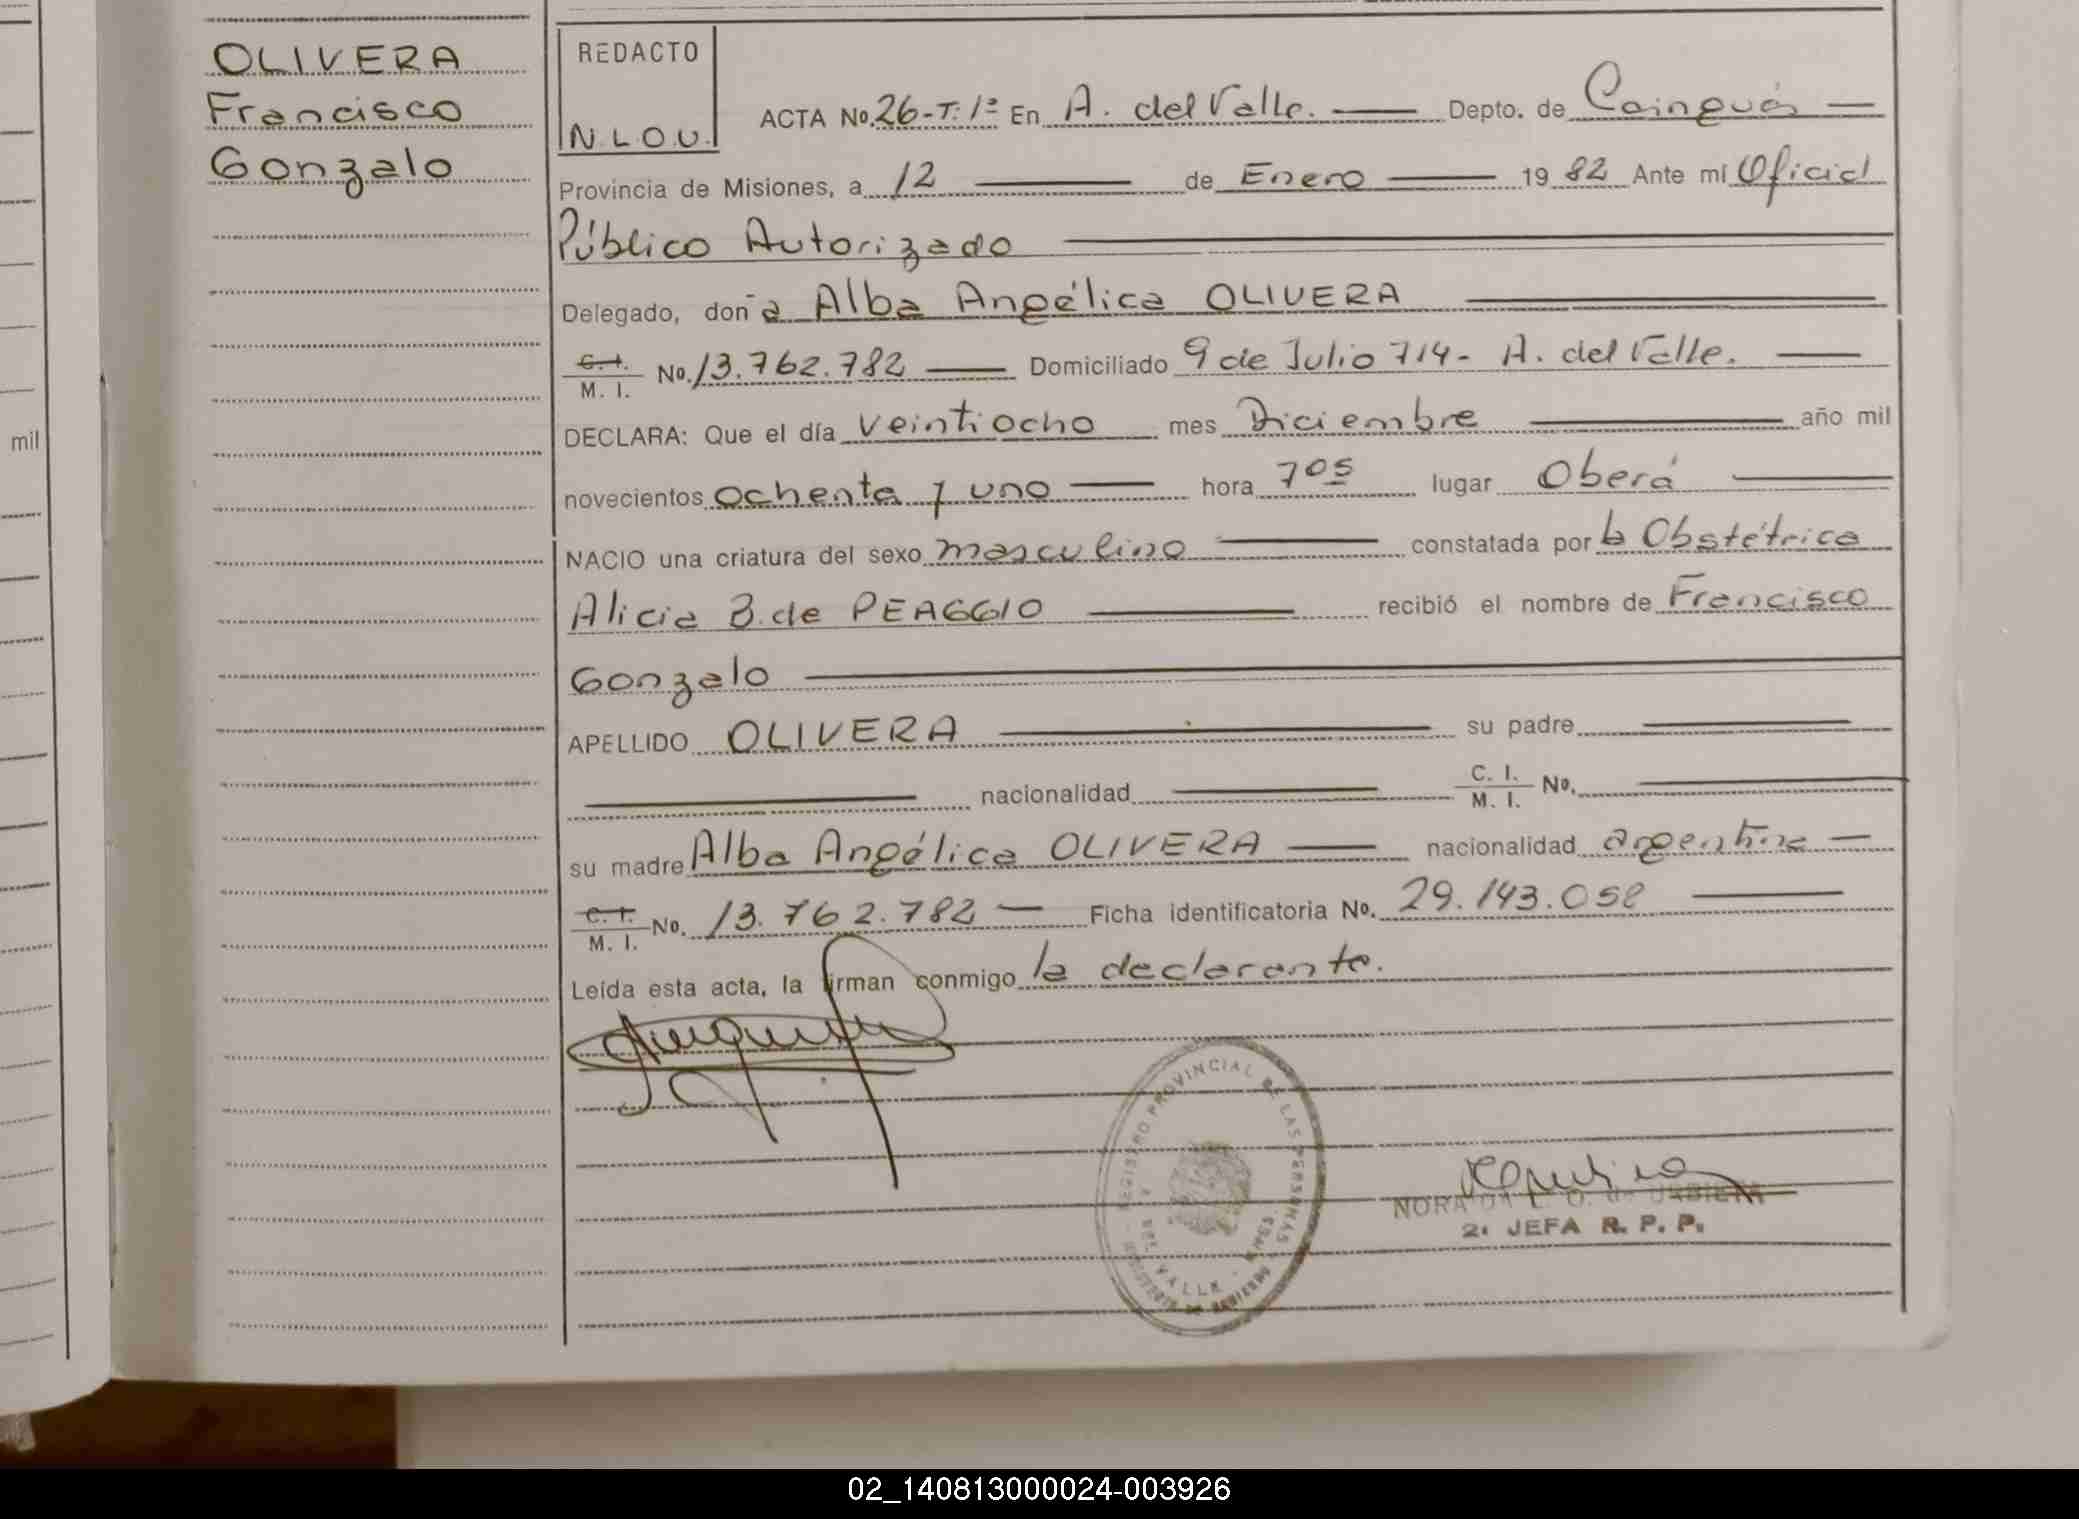 OLIVERA
Francisco
Gonzalo
mil
REDACTO
N.L.O.U.
ACTA No. 26-T: 1º En A. del Valle. Depto. de Cainguás
Provincia de Misiones, a 12 de Enero 1982 Ante mí Oficial
Público Autorizado
Delegado, doña Alba Angélica OLIVERA
C. I. / M. I. No. 13.762.782 Domiciliado 9 de Julio 714- A. del Valle.
DECLARA: Que el día veintiocho mes Diciembre año mil
novecientos ochenta y uno hora 7 05 lugar Oberá
NACIO una criatura del sexo masculino constatada por la Obstétrica
Alicia B. de PEAGGIO recibió el nombre de Francisco
Gonzalo
APELLIDO OLIVERA su padre
nacionalidad C. I. / M. I. No.
su madre Alba Angélica OLIVERA nacionalidad argentina
C. I. / M. I. No. 13.762.782 Ficha identificatoria No. 29.143.058
Leída esta acta, la firman conmigo la declarante.
REGISTRO PROVINCIAL DE LAS PERSONAS
DEL VALLE
NORA L. O. de URBIETA
2. JEFA R. P. P.
02_140813000024-003926